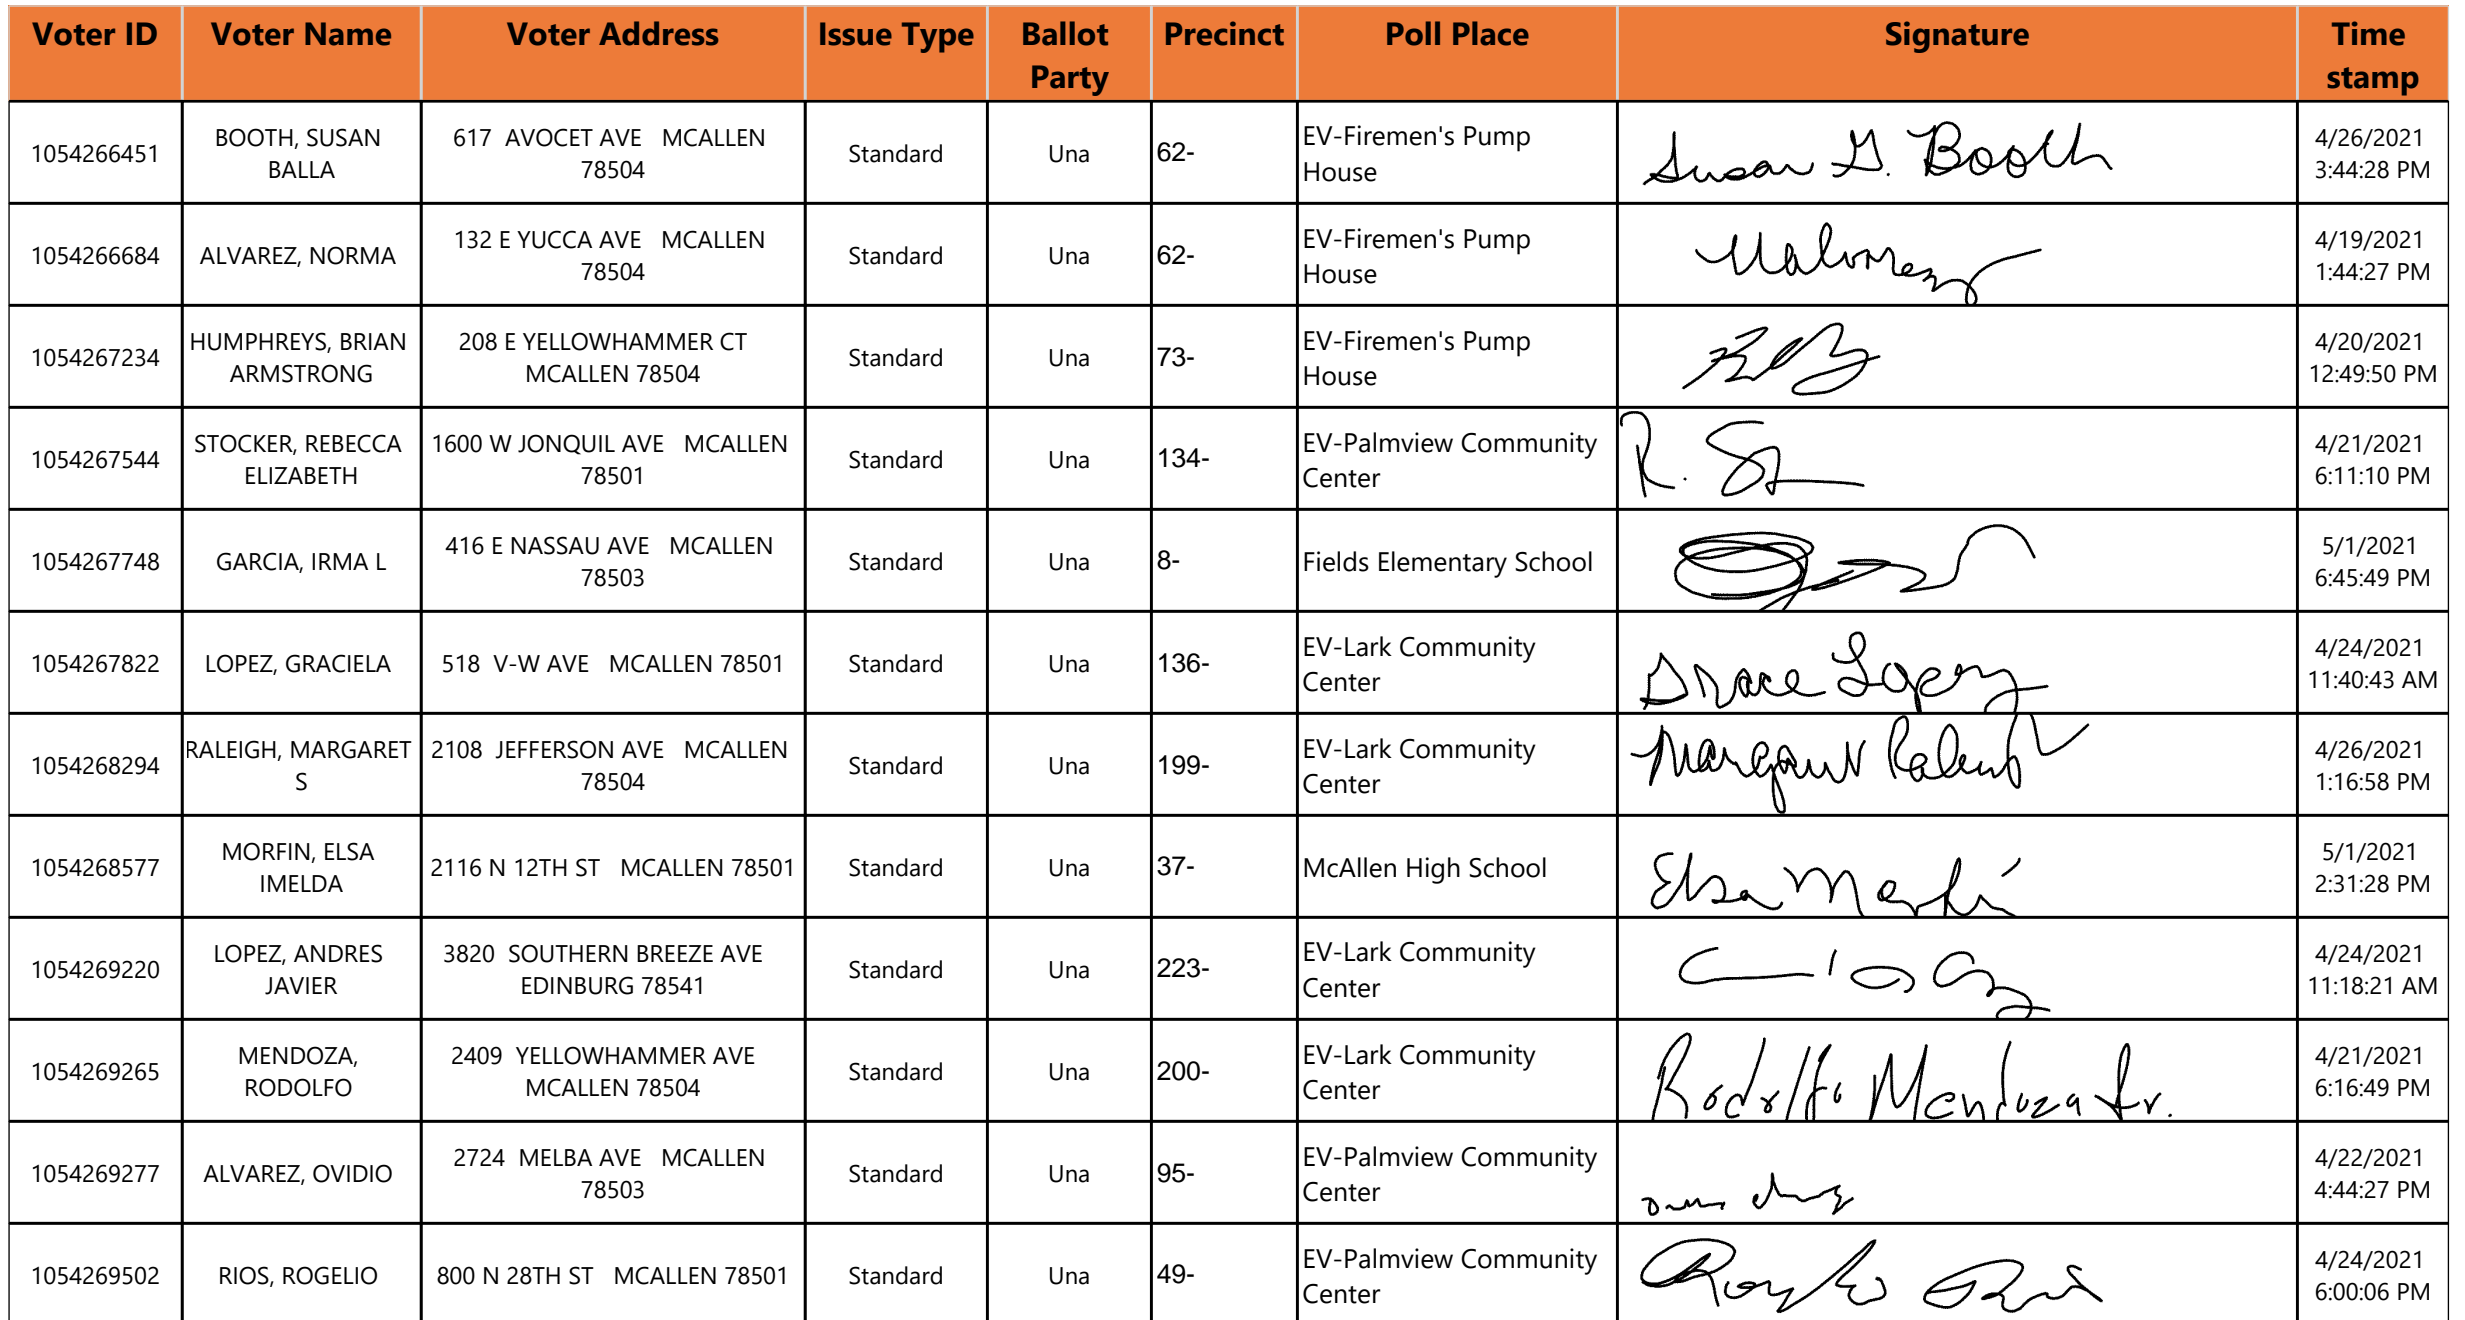 Voter ID Voter Name Voter Address Issue Type Ballot Party Precinct Poll Place Signature Time stamp
1054266451 BOOTH, SUSAN BALLA 617 AVOCET AVE MCALLEN 78504 Standard Una 62- EV-Firemen's Pump House Susan G. Booth 4/26/2021 3:44:28 PM
1054266684 ALVAREZ, NORMA 132 E YUCCA AVE MCALLEN 78504 Standard Una 62- EV-Firemen's Pump House 4/19/2021 1:44:27 PM
1054267234 HUMPHREYS, BRIAN ARMSTRONG 208 E YELLOWHAMMER CT MCALLEN 78504 Standard Una 73- EV-Firemen's Pump House 4/20/2021 12:49:50 PM
1054267544 STOCKER, REBECCA ELIZABETH 1600 W JONQUIL AVE MCALLEN 78501 Standard Una 134- EV-Palmview Community Center R. 4/21/2021 6:11:10 PM
1054267748 GARCIA, IRMA L 416 E NASSAU AVE MCALLEN 78503 Standard Una 8- Fields Elementary School 5/1/2021 6:45:49 PM
1054267822 LOPEZ, GRACIELA 518 V-W AVE MCALLEN 78501 Standard Una 136- EV-Lark Community Center Grace Lopez 4/24/2021 11:40:43 AM
1054268294 RALEIGH, MARGARET S 2108 JEFFERSON AVE MCALLEN 78504 Standard Una 199- EV-Lark Community Center Margaret Raleigh 4/26/2021 1:16:58 PM
1054268577 MORFIN, ELSA IMELDA 2116 N 12TH ST MCALLEN 78501 Standard Una 37- McAllen High School Elsa Morfin 5/1/2021 2:31:28 PM
1054269220 LOPEZ, ANDRES JAVIER 3820 SOUTHERN BREEZE AVE EDINBURG 78541 Standard Una 223- EV-Lark Community Center 4/24/2021 11:18:21 AM
1054269265 MENDOZA, RODOLFO 2409 YELLOWHAMMER AVE MCALLEN 78504 Standard Una 200- EV-Lark Community Center Rodolfo Mendoza Sr. 4/21/2021 6:16:49 PM
1054269277 ALVAREZ, OVIDIO 2724 MELBA AVE MCALLEN 78503 Standard Una 95- EV-Palmview Community Center 4/22/2021 4:44:27 PM
1054269502 RIOS, ROGELIO 800 N 28TH ST MCALLEN 78501 Standard Una 49- EV-Palmview Community Center 4/24/2021 6:00:06 PM